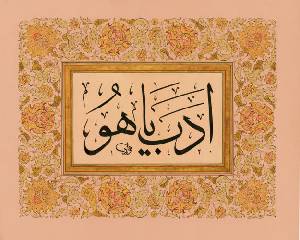 ادب یا هو